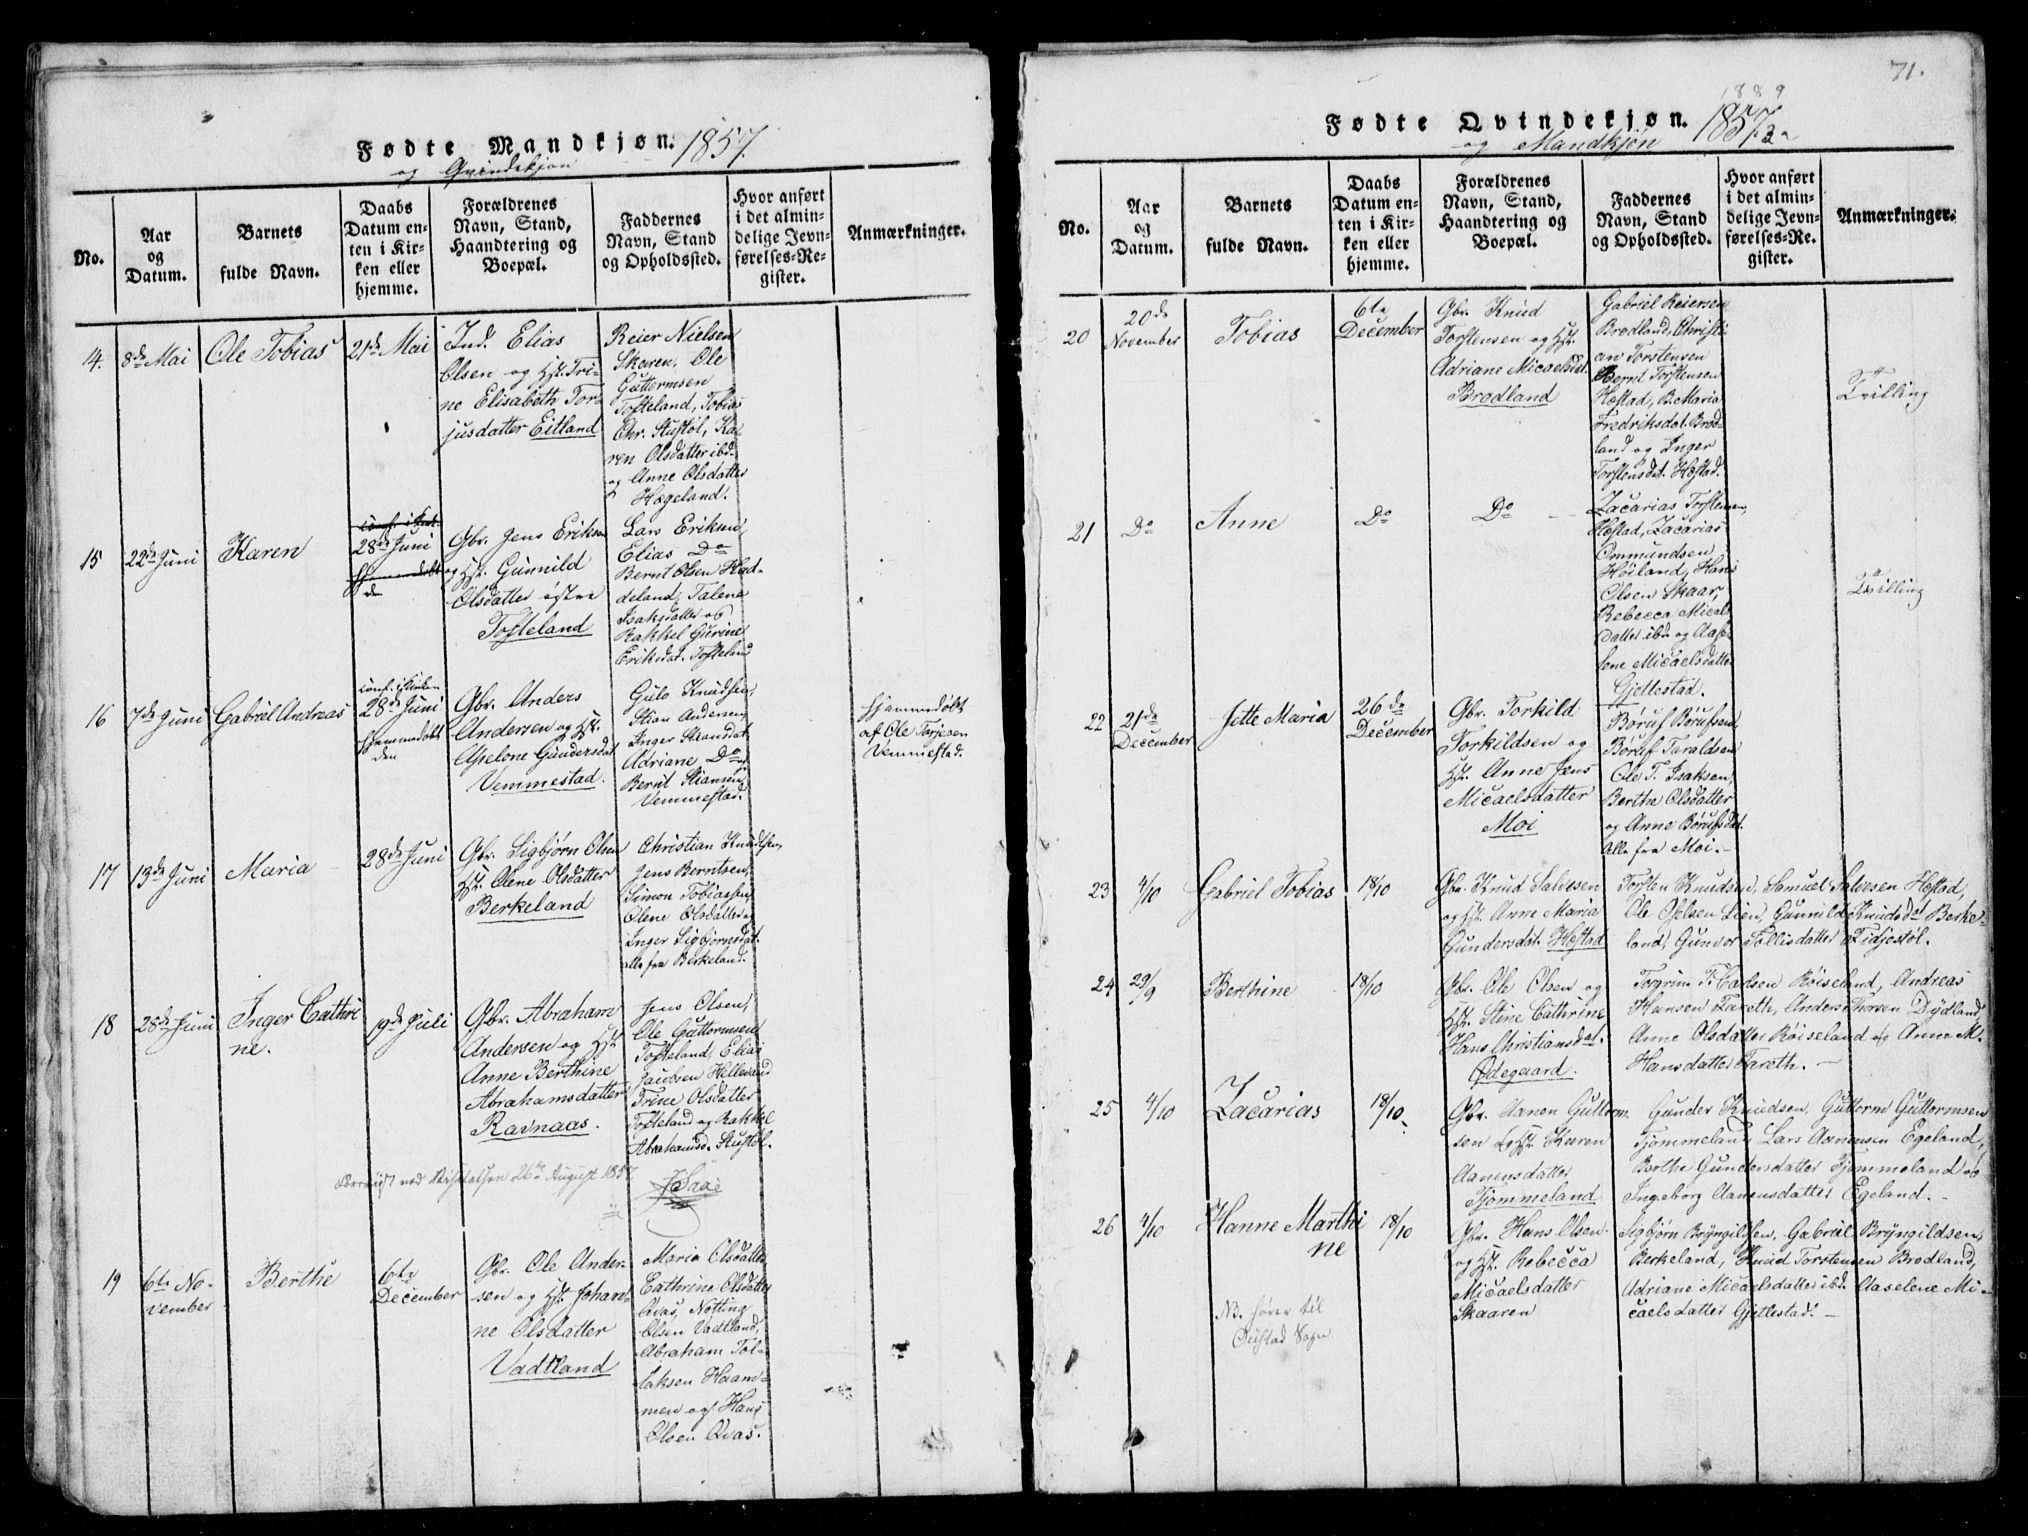 Fødte Mandkjøn. 1857.
og Qvindekjøn
No.
Aar
og
Datum.
Barnets
fulde Navn.
Daabs
Datum en-
ten i Kir-
ken eller
hjemme.
Forældrenes
Navn, Stand,
Haandtering og
Boepæl.
Faddernes
Navn, Stand
og Opholdssted.
Hvor anført
i det almin-
delige Jevn-
førelses-Re-
gister.
Anmærkninger.
14. 8de Mai Ole Tobias 21de Mai
Ind. Elias
Olsen og Hst. Tri-
ne Elisabeth Tor-
jusdatter Eitland
Reier Nielsen
Skaren, Ole
Guttormsen
Tofteland, Tobias
Chr. Stustøl, Ka-
ren Olsdatter ibd.
og Anne Olsdatter
Hægeland.
15 22de Juni Karen
28de Juni
Gbr. Jens Eriksen
og Hst. Gunnild
Olsdatter østre
Tofteland
Lars Eriksen,
Elias Do
Bernt Olsen Had-
deland, Talene
Isaksdatter og
Rakkel Gurine
Eriksdat. Tofteland
16 7de Juni Gabriel Andreas
conf. i Kirken
28de Juni
hjemmedøbt
den
Gbr. Anders
Andersen og Hst.
Aselone Gundersdat.
Vemmestad.
Gulo Knudsen,
Stian Andersen,
Inger Stiansdat.
Adriane Do og
Bernt Stiansen,
Vemmestad.
Hjemmedøbt
af Ole Torjesen
Vemmestad.
17 13de Juni Maria 28de Juni
Gbr. Sigbjørn Olsen
Hst. Olene Olsdatter
Berkeland
Christian Knudsen,
Jens Berntsen,
Simon Tobiassen,
Olene Olsdatter og
Inger Sigbjørnsdat.
alle fra Berkeland.
18 28de Juni Inger Cathri
ne.
19de Juli
Gbr. Abraham
Andersen og Hst.
Anne Berthine
Abrahamsdatter
Ravnaas.
Jens Olsen,
Ole Guttormsen
Tofteland, Elias
Jacobsen Hellevand
Trine Olsdatter
Tofteland og Rakkel
Abrahamsd. Stustøl.
ved Visitatsen 26de August 1857
19 6te No-
vember
Berthe
6te
December
Gbr. Ole Ander-
sen og Hst. Johan-
ne Olsdatter
Vadtland
Maria Olsdatter
Cathrine Olsdatter
Qvas, Notting
Olsen Vadtland,
Abraham Tol-
laksen Haam-
men og Hans
Olsen Qvas.
71.
1889
Fødte Qvindekjøn. 1857.
og Mandkjøn
No.
Aar
og
Datum.
Barnets
fulde Navn.
Daabs
Datum en-
ten i Kir-
ken eller
hjemme.
Forældrenes
Navn, Stand,
Haandtering og
Boepæl.
Faddernes
Navn, Stand
og Opholdssted.
Hvor anført
i det almin-
delige Jevn-
førelses-Re-
gister.
Anmærkninger.
20 20de
November
Tobias
6te
December
Gbr. Knud
Torstensen og Hst.
Adriane Micaelsdat.
Brodland
Gabriel Reiersen
Brodland, Christi-
an Torstensen
Bernt Torstensen
Hæstad, B. Maria
Fredriksdat. Brod-
land og Inger
Torstensdat. Hæstad.
Tvilling
21 Do Anne Do Do
Zacarias Torstensen,
Hæstad, Zacarias
Ommundsen
Høiland, Hans
Olsen Skaar,
Rebecca Micaels
datter ibd. og Aase-
lene Micaelsdatter
Gjettestad.
Tvilling
22 21de
December
Jette Maria
26de
December
Gbr. Torkild
Torkildsen og
Hst. Anne Jens
Micaelsdatter
Moi
Børuf Børufsen
Børuf Taraldsen
Ole T. Isaksen,
Berthe Olsdatter
og Anne Børufsdat.
Alle fra Moi.
23 4/10 Gabriel Tobias 18/10
Gbr. Knud Salvesen
og Hst. Anne Maria
Gundersdat. Hæstad
Torsten Knudsen, Samuel Salvesen Hæstad,
Ole Olsen Lien, Gunnild Knudsdat. Berke-
land, Gunvor Tollisdatter Tidjestøl.
24 29/9 Berthine 18/10
Gbr. Ole Olsen og
Hst. Stine Cathrine
Hans Christiansdat.
Ødegaard.
Torgrim T. Carlsen Røiseland, Andreas
Hansen Fareth, Anders Thorsen Dydland,
Anne Olsdatter Røiseland og Anne M.
Hansdatter Fareth.
25 4/10 Zacarias 18/10
Gbr. Aanon Guttorm-
sen og Hst. Karen
Aanensdatter
Tjømmeland
Gunder Knudsen, Guttorm Guttormsen
Tjømmeland, Lars Aanensen Egeland,
Berthe Gundersdatter Tjømmeland og
Ingeborg Aanensdatter Egeland.
26 4/10 Hanne Marthi
ne
18/10
Gbr. Hans Olsen
og Hst. Rebecca
Micaelsdatter
Skaaren
Sigbjørn Bryngilsen, Gabriel Bryngildsen,
Berkeland, Knud Torstensen Brodland,
Adriane Micaelsdatter ibd. Aaselene Mi-
caelsdatter Gjettestad.
NB. hører til
Sogn